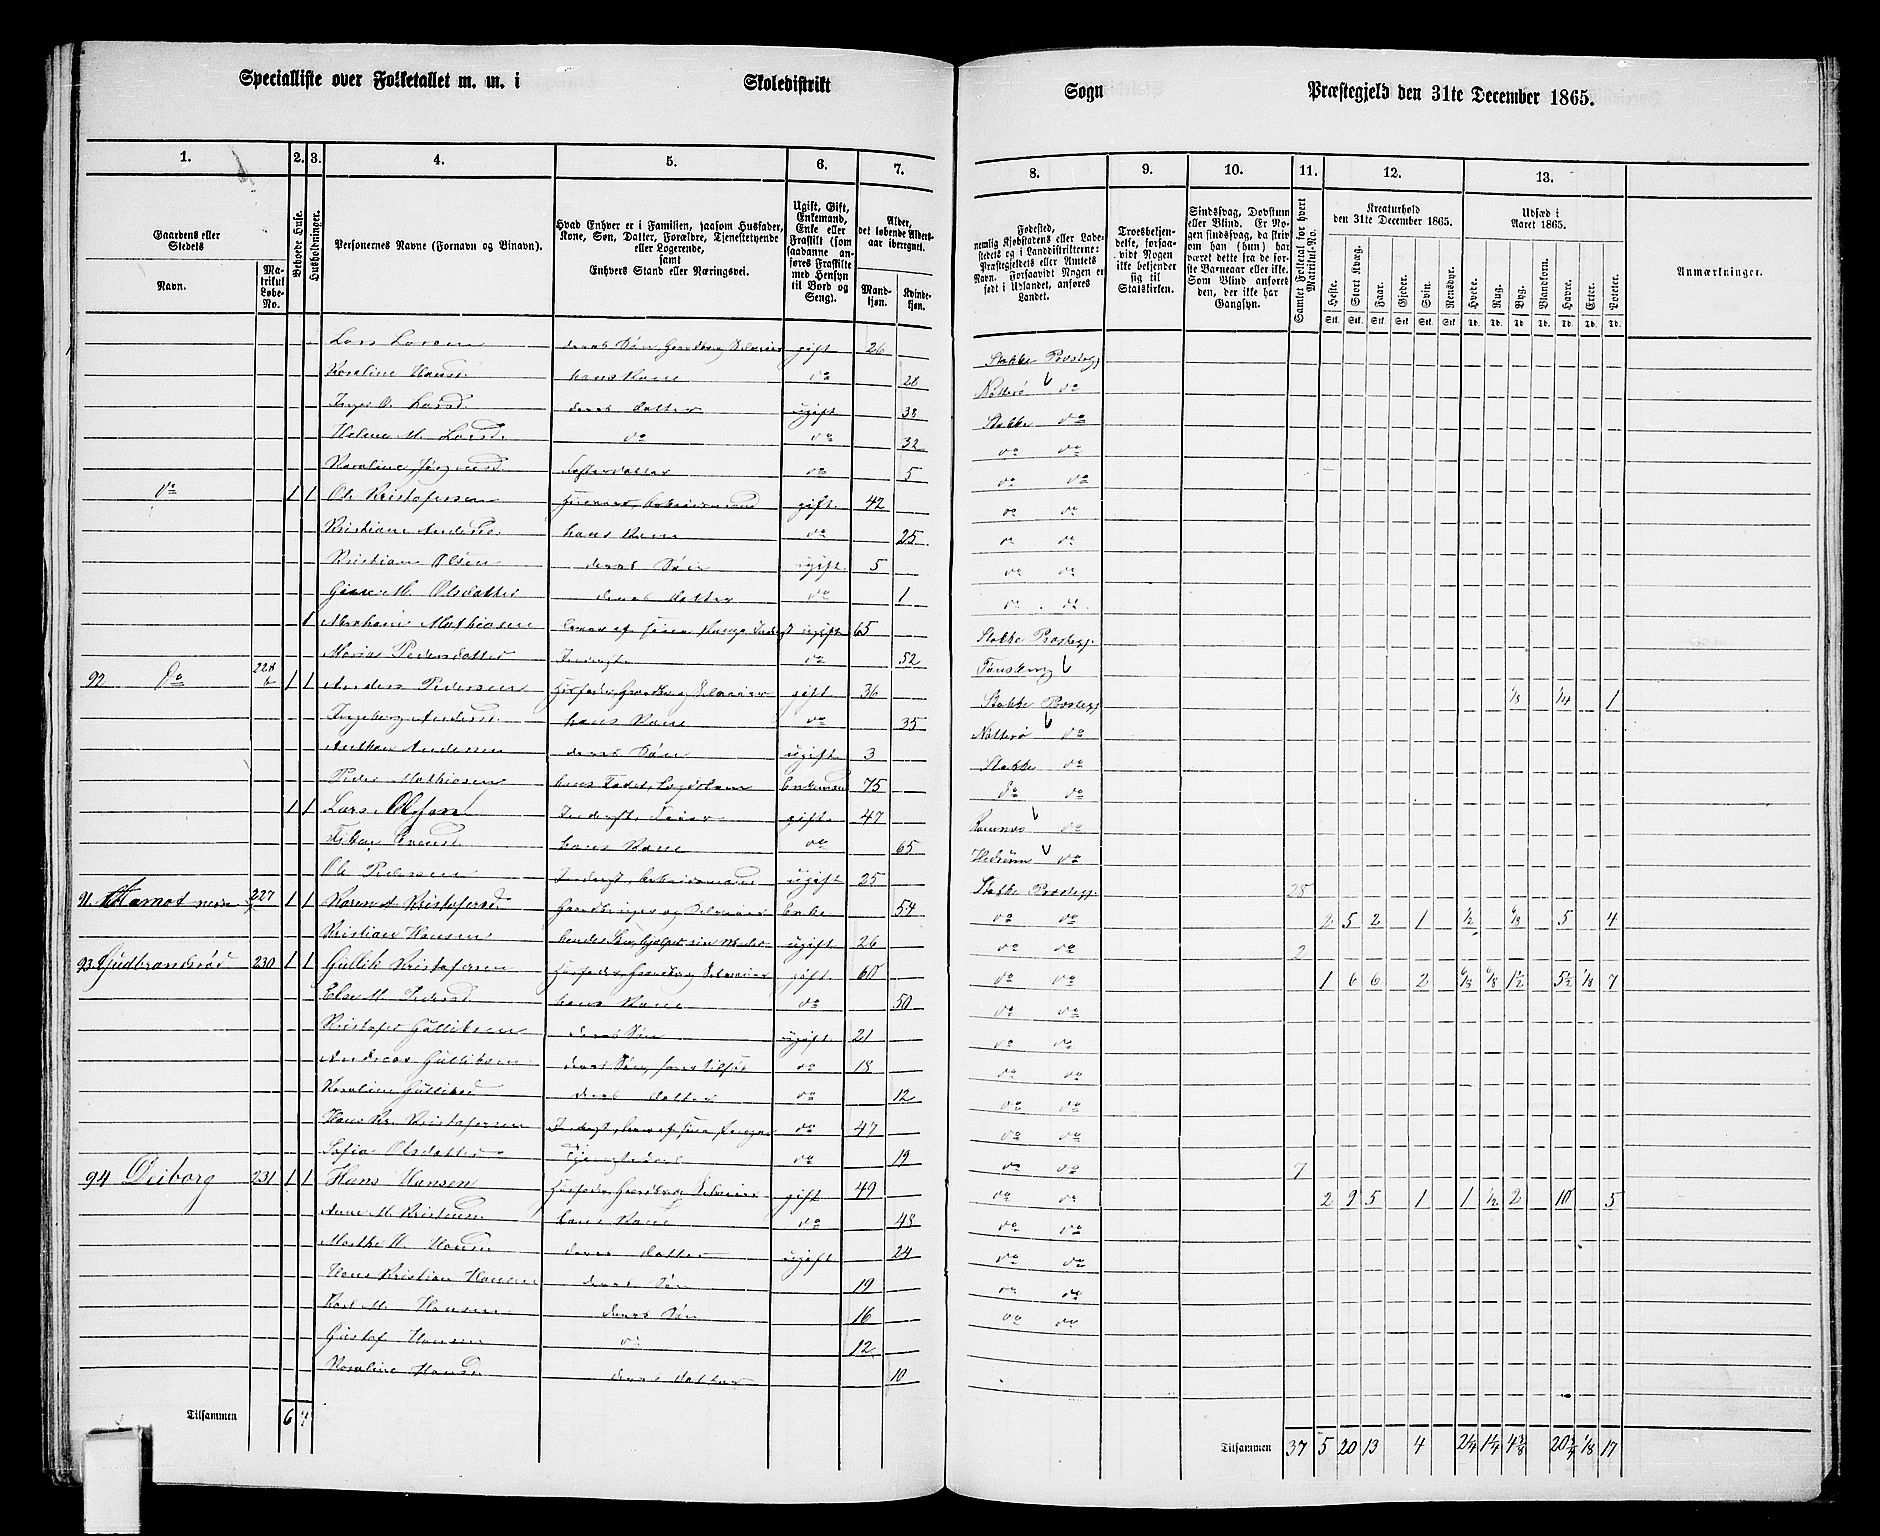 Specialliste over Folketallet m. m. i Skoledistrikt Sogn Præstegjeld den 31te December 1865.
1. 2. 3. 4. 5. 6. 7. 8. 9. 10. 11. 12. 13.
Gaardens eller Stedets
Navn.
Matrikul Løbe-No.
Beboede Huse.
Husholdninger.
Personernes Navne (Fornavn og Binavn).
Hvad Enhver er i Familien, saasom Husfader, Kone, Søn, Datter, Forældre, Tjenestetyende eller Logerende, samt Enhvers Stand eller Næringsvei.
Ugift, Gift, Enkemand, Enke eller Fraskilt (som saadanne anføres Fraskilte med Hensyn til Bord og Seng).
Alder, det løbende Alders-aar iberegnet.
Mandkjøn. Kvindekjøn.
Fødested, nemlig Kjøbstadens eller Ladestedets og i Landdistrikterne: Præstegjeldets eller Amtets Navn. Forsaavidt Nogen er født i Udlandet, anføres Landet.
Troesbekjendelse, forsaavidt Nogen ikke bekjender sig til Statskirken.
Sindssvag, Døvstum eller Blind. Er Nogen sindssvag, da skrives om han (hun) har været dette fra de første Barneaar eller ikke. Som Blind anføres den, der ikke har Gangsyn.
Samlet Folketal for hvert Matrikul-No.
Kreaturhold den 31te December 1865.
Heste. Stort Kvæg. Faar. Gjeder. Svin. Rensdyr.
Udsæd i Aaret 1865.
Hvete. Rug. Byg. Blandkorn. Havre. Erter. Poteter.
Anmærkninger.
Lars Larsen gift 26 Stokke Præstegj
Karoline Hansd hans Kone do 28 Nøtterø do
Inger O. Larsd. deres Datter ugift 38 Stokke do
Helene M. Larsd. do do 32 do do
Karoline Jørgensd do 5 do do
do 1 1 Ole Kristofersen gift 42 do do
Kristiane Andersd. hans Kone do 25 do do
Kristian Olsen deres Søn ugift 5 do do
M. Olsdatter deres Datter do 1 do do
1 Abraham Mathiasen ugift 65 Stokke Præstegj.
Maria Pedersdatter Inderst do 52 Tønsberg
92 Do 1 1 Anders Pedersen Husfader, Gaardbr. og Selveier gift 36 Stokke Præstegj 1/8 1/4 1
Ingeborg Andersd. hans Kone do 35 Nøtterø do
Anthon Andersen deres Søn ugift 3 Stokke do
Peder Mathiasen hans Fader, Enkemand 75 do do
1 1 Lars Olsson Inderst gift 47 Ramnæs do
hans Kone do 65 Hedrum do
Ole Pedersen Inderst, Arbeidsmand ugift 25 Stokke Præstegj. 25
91. nedre 227 1 1 Karen A. Kristofersd. Gaardbruger og Selveier Enke 54 do do 2 5 2 1 1/2 6/8 5 4
Kristian Hansen hendes Søn, hjelper sin Moder ugift 26 do do 2
93 Gudbrandsrød 230 1 1 Gullik Kristofersen Husfader, Gaardbr. og Selveier gift 60 do do 1 6 6 2 6/8 6/8 1 1/2 5 1/2 1/8 7
Else M. Pedersd hans Kone do 50 do do
Kristofer Gulliksen deres Søn ugift 21 do do
Andreas Gulliksen deres Søn, do 18 do do
Karoline Gulliksd deres Datter do 12 do do
Hans Kr. Kristofersen Inderst, do 47 do do
Sofie Olsdatter do 19 do do 7
94 Deiborg 231 1 1 Hans Hansen Husfader, Gaardbr. og Selveier gift 49 do do 2 9 5 1 1 1/2 2 10 5
Anne M. Kristensd. hans Kone do 48 do do
Marthe M. Hansd deres Datter ugift 24 do do
Hans Kristian Hansen deres Søn 19 do do
Karl M. Hansen deres Søn 16 do do
Gustaf Hansen do 12
Karoline Hansd deres Datter 10
Tilsammen 6 7 Tilsammen 37 5 20 13 4 2 1/4 1 3/4 4 3/8 20 3/4 1/8 17